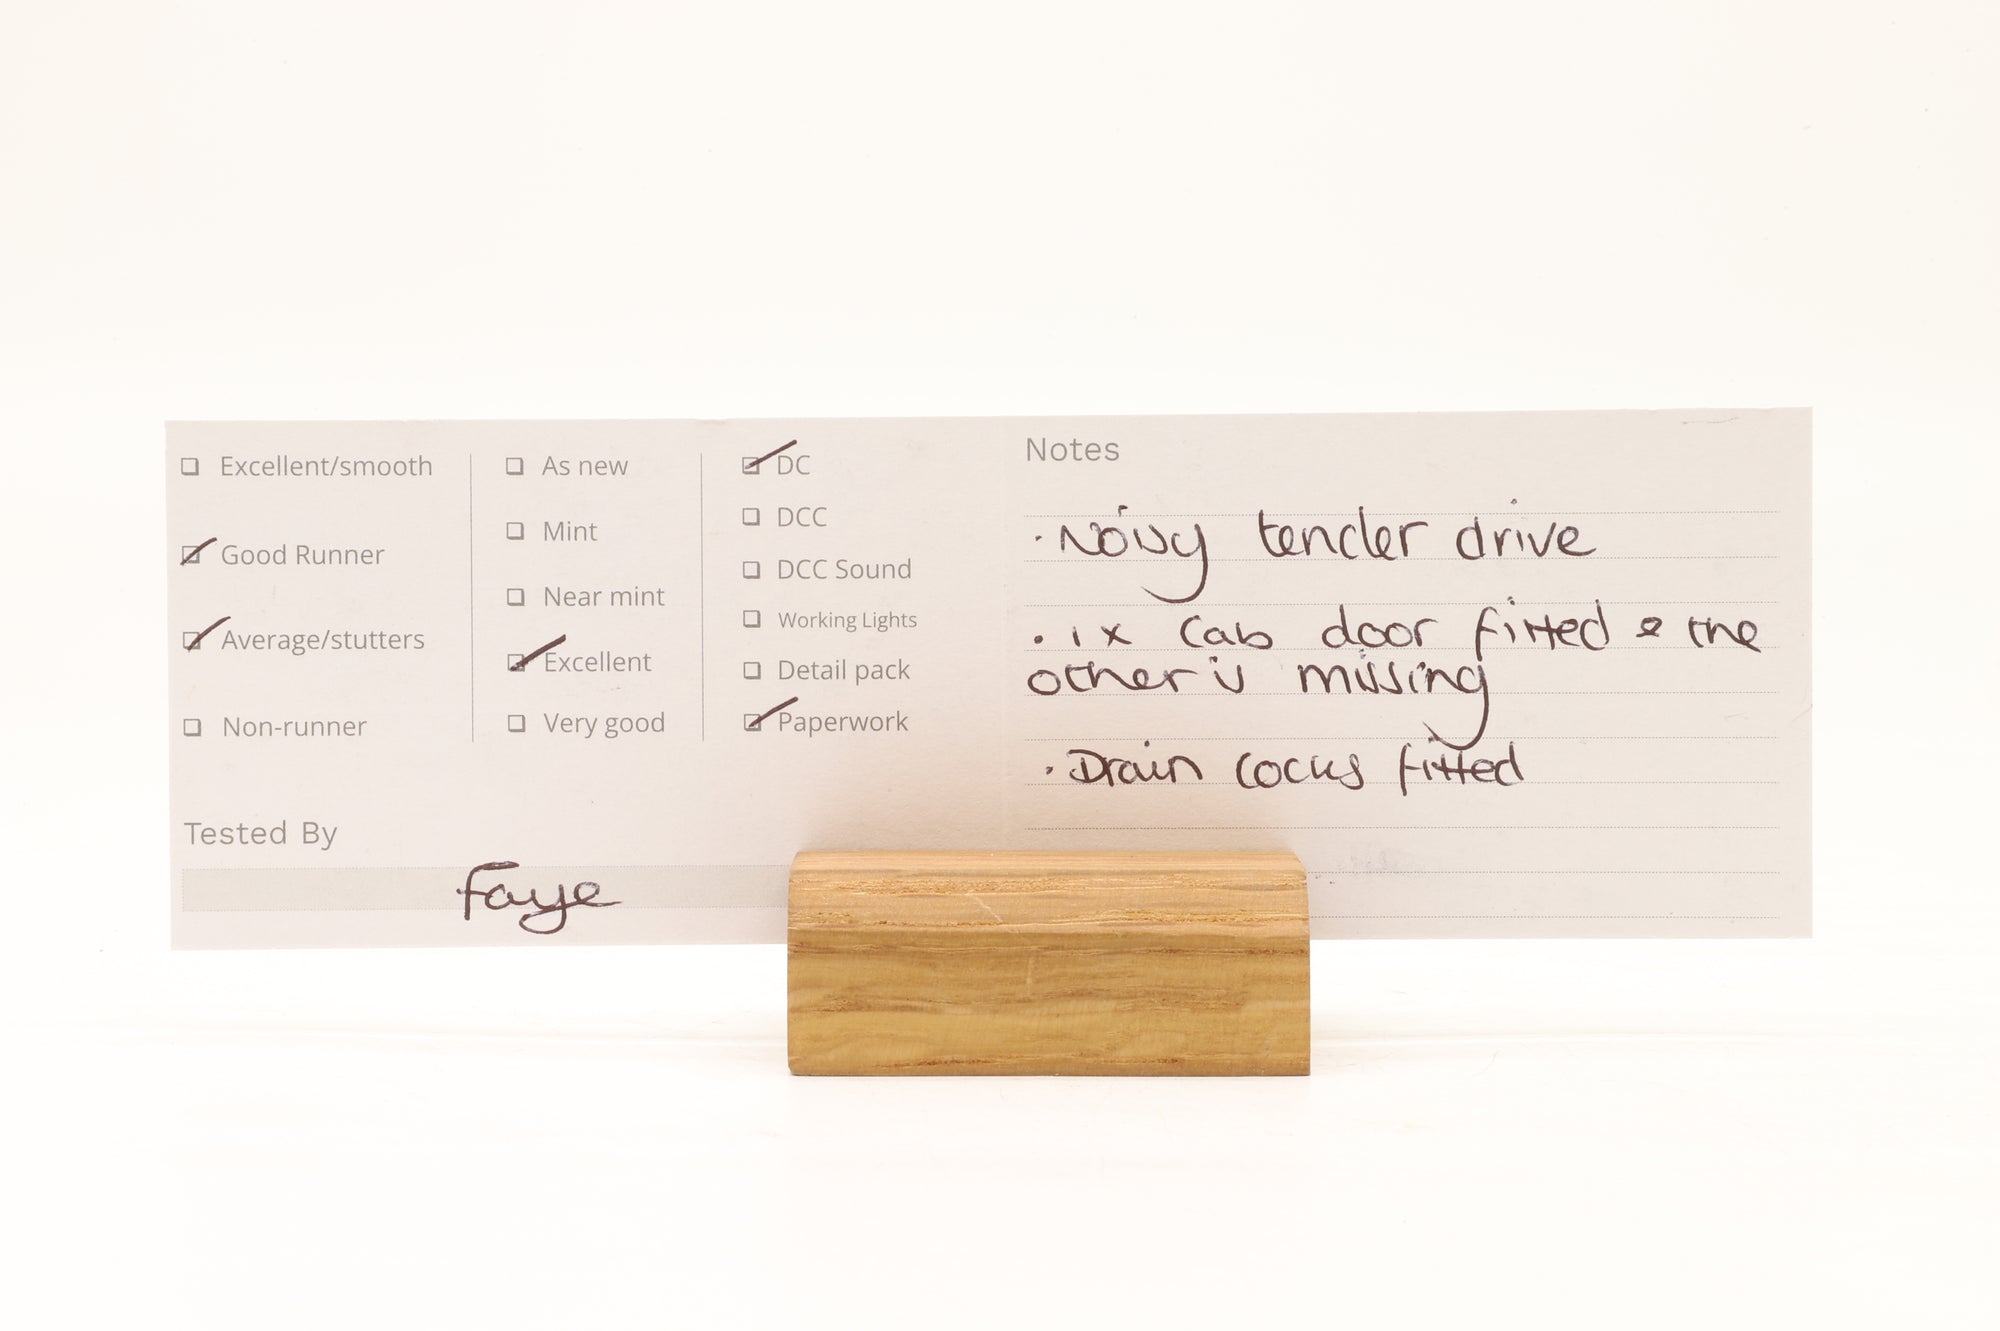 Excellent/smooth
Good Runner
Average/stutters
Non-runner
As new
Mint
Near mint
Excellent
Very good
DC
DCC
DCC Sound
Working Lights
Detail pack
Paperwork
Tested By
Faye
Notes
· Noisy tender drive
· 1x Cab door fitted & the
other is missing
· Drain cocks fitted